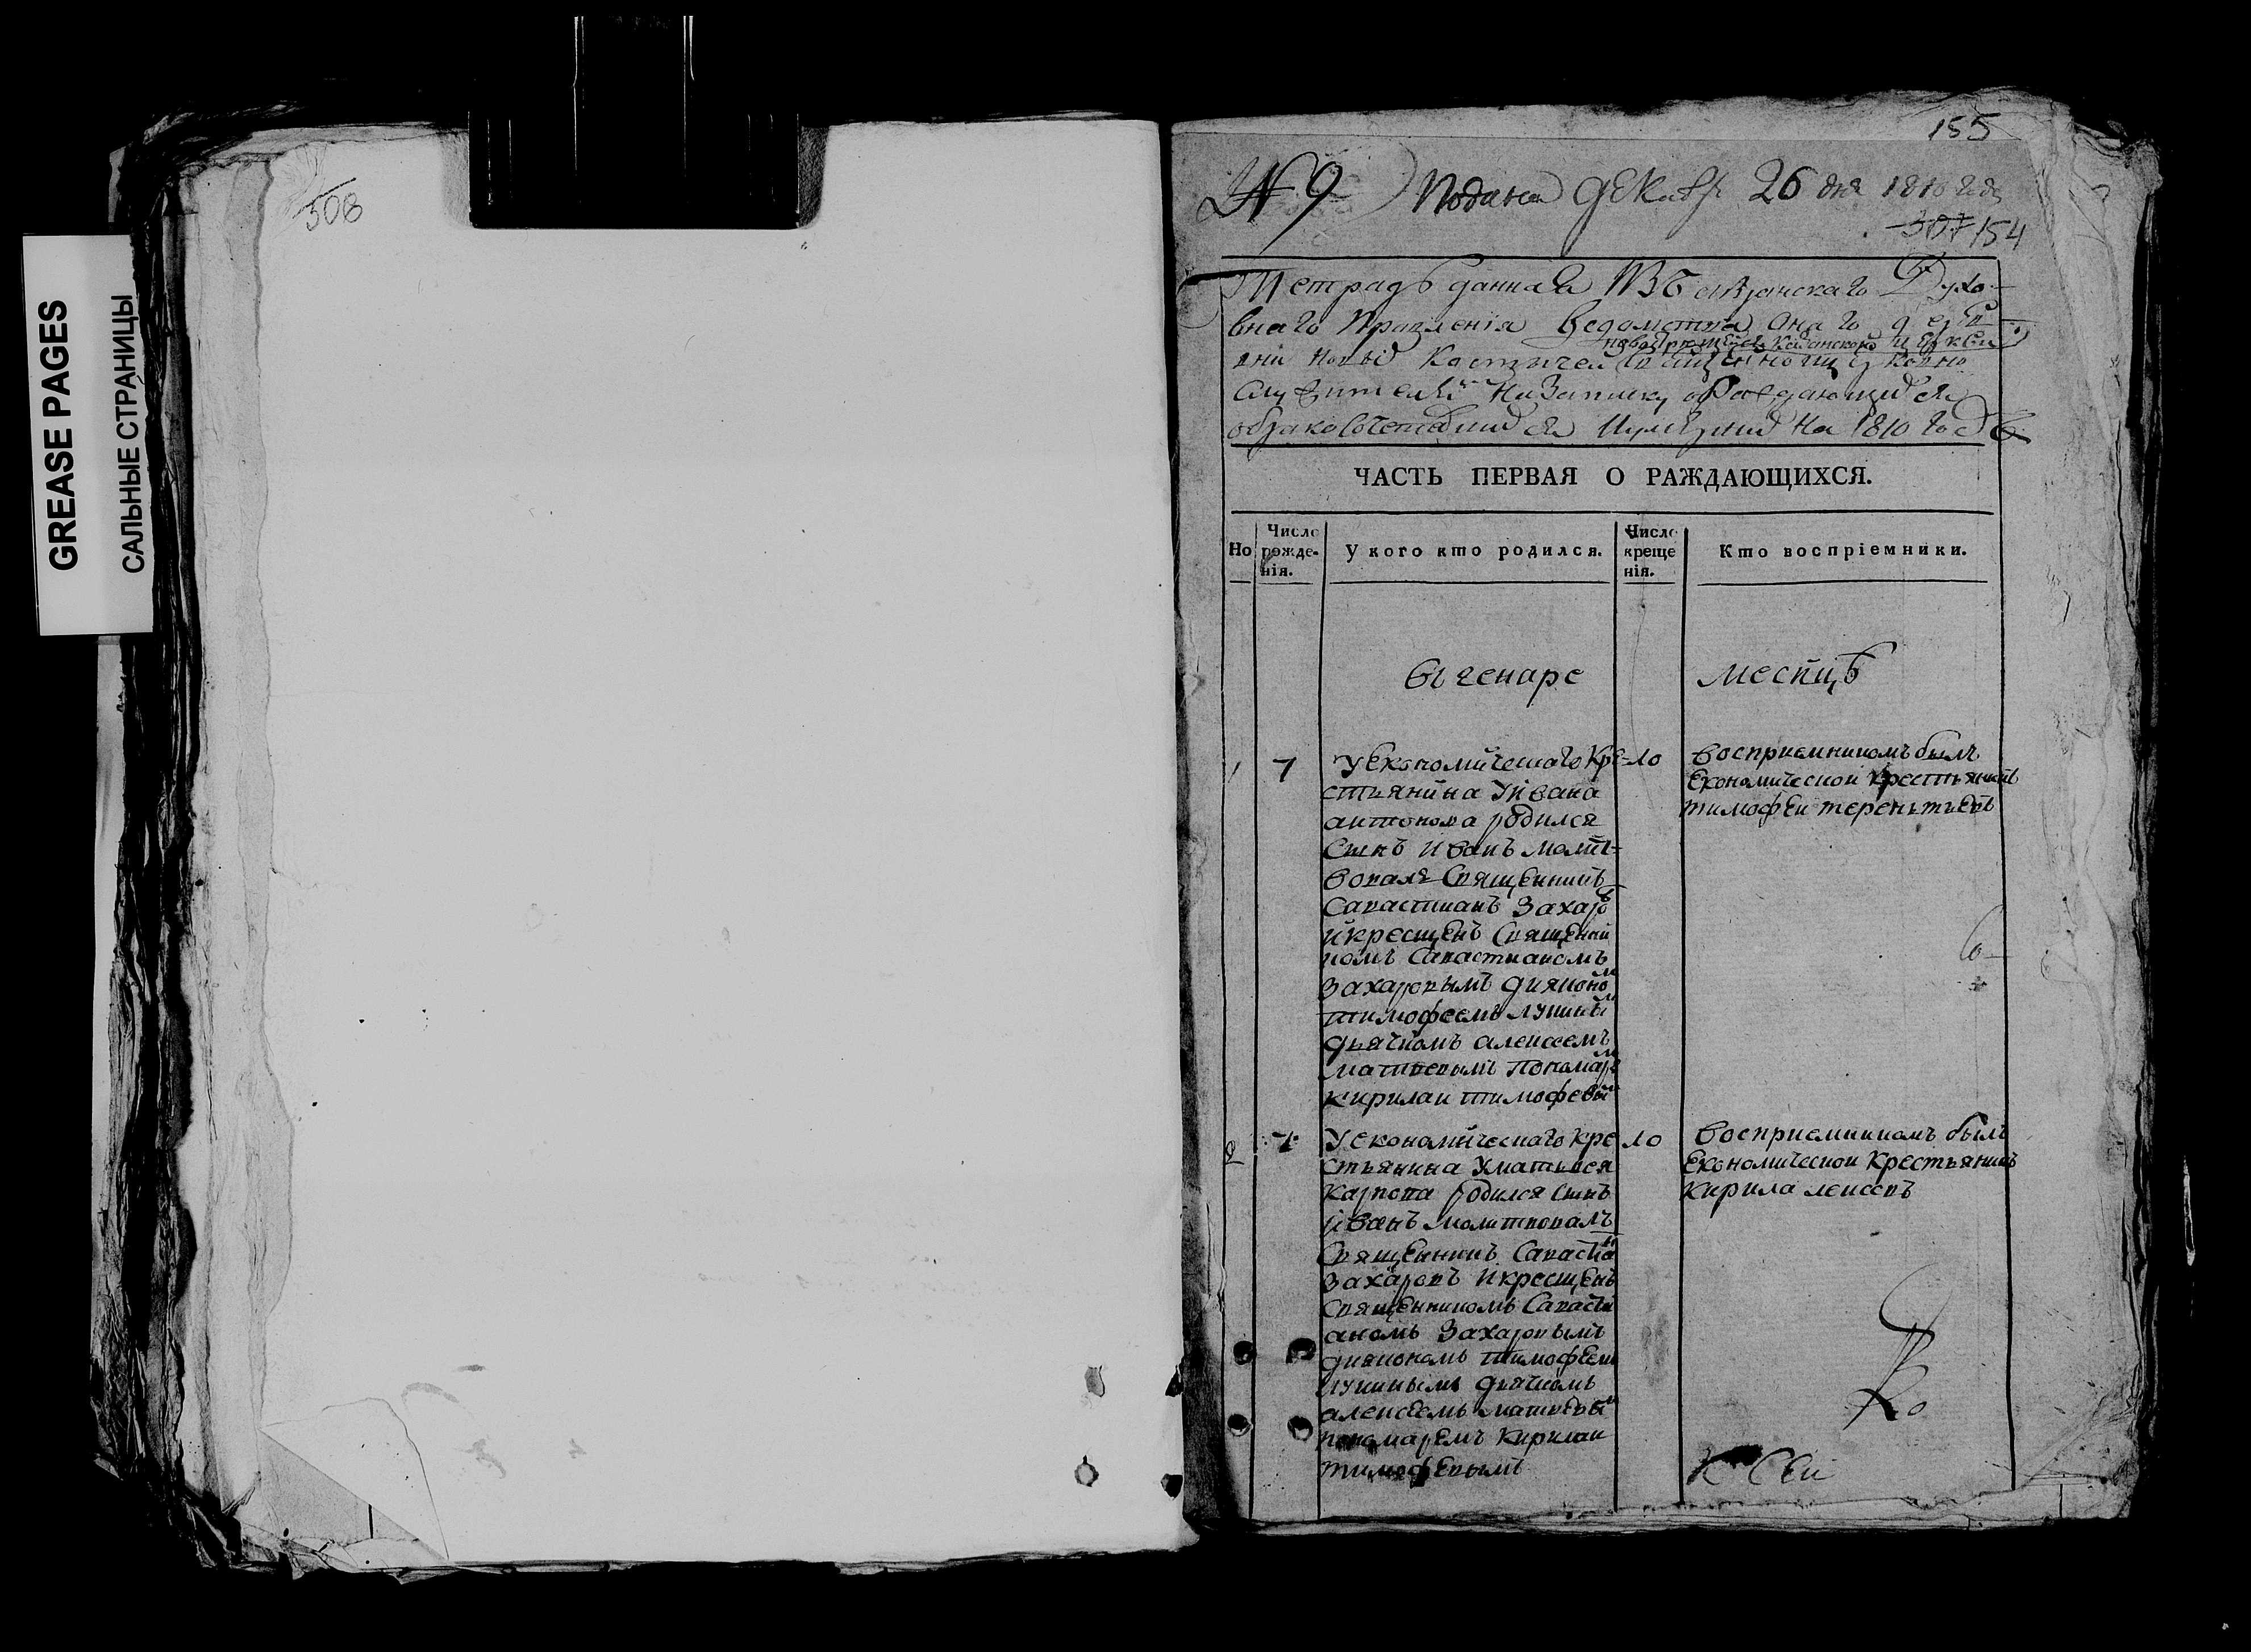 GREASE PAGES
САЛЬНЫЕ СТРАНИЦЫ
308
155
N 9 Подана декабр 26 дня 1810 года
307 154
Тетрадь данная Изъ Сызранскаго Духо-
внаго Правления Ведомства онаго
новь Костычей Священно и церковно
служителямъ На Записку о Раждающихся
обраковочетавшихся И умерших На 1810 Годъ
ЧАСТЬ ПЕРВАЯ О РАЖДАЮЩИХСЯ.
Но
Число рожде-нія.
У кого кто родился.
Число креще нія.
Кто воспріемники.
въ генаре месяцъ
1 7
У Економическаго Кре-
стьянина Ивана
антонова родился
Сынъ Иванъ молит-
вовалъ Священникъ
Савастианъ Захаровъ
и крещенъ Священни
комъ Савастианомъ
Захаровымъ дияконом
тимофеемъ лукиным
дьячкомъ алексеемъ
матвевымъ Пономарем
кирилаи тимофевым
10
Восприемникомъ былъ
Економической Крестьянинъ
тимофеи терентьевъ
2 7
У економическаго кре
стьянина Матвея
Карпова родился сынъ
иванъ молитвовалъ
Священникъ Савастиан
Захаровъ И крещенъ
Священникомъ Савасти
аномъ Захаровымъ
диякономъ тимофеем
лукинымъ дьячкомъ
алексеемъ матвевым
пономаремъ Кирилаи
тимофевымъ
10
Восприемникомъ былъ
Економической Крестьянинъ
Кирила
Ко
К Сеи